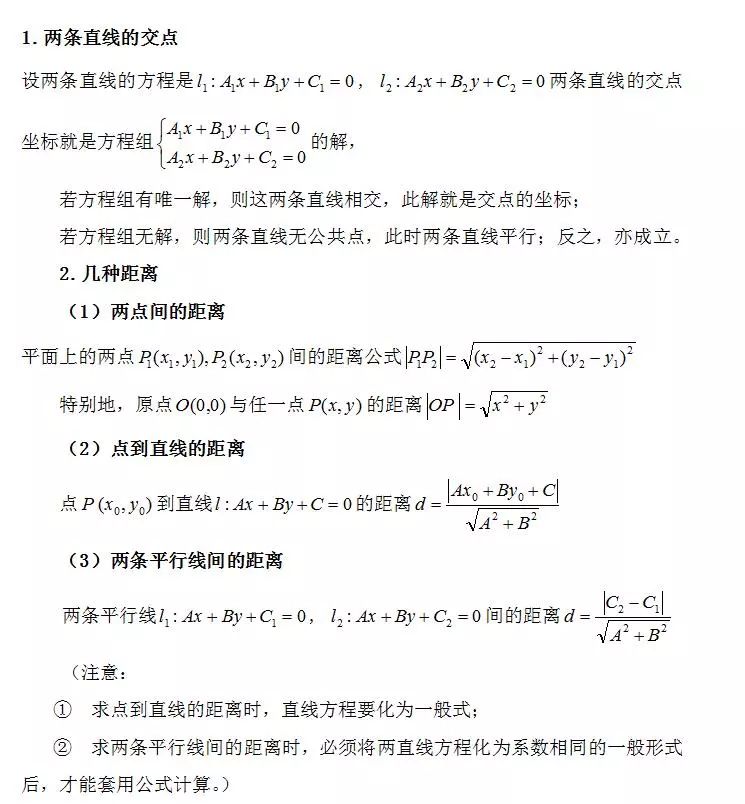 1. 两条直线的交点
设两条直线的方程是 l₁ : A₁x + B₁y + C₁ = 0， l₂ : A₂x + B₂y + C₂ = 0 两条直线的交点
坐标就是方程组 { A₁x + B₁y + C₁ = 0
A₂x + B₂y + C₂ = 0 的解，
若方程组有唯一解，则这两条直线相交，此解就是交点的坐标；
若方程组无解，则两条直线无公共点，此时两条直线平行；反之，亦成立。
2. 几种距离
（1）两点间的距离
平面上的两点 P₁(x₁, y₁), P₂(x₂, y₂) 间的距离公式 |P₁P₂| = √((x₂ − x₁)² + (y₂ − y₁)²)
特别地，原点 O(0,0) 与任一点 P(x, y) 的距离 |OP| = √(x² + y²)
（2）点到直线的距离
点 P (x₀, y₀) 到直线 l : Ax + By + C = 0 的距离 d = |Ax₀ + By₀ + C| / √(A² + B²)
（3）两条平行线间的距离
两条平行线 l₁ : Ax + By + C₁ = 0， l₂ : Ax + By + C₂ = 0 间的距离 d = |C₂ − C₁| / √(A² + B²)
（注意：
① 求点到直线的距离时，直线方程要化为一般式；
② 求两条平行线间的距离时，必须将两直线方程化为系数相同的一般形式
后，才能套用公式计算。）